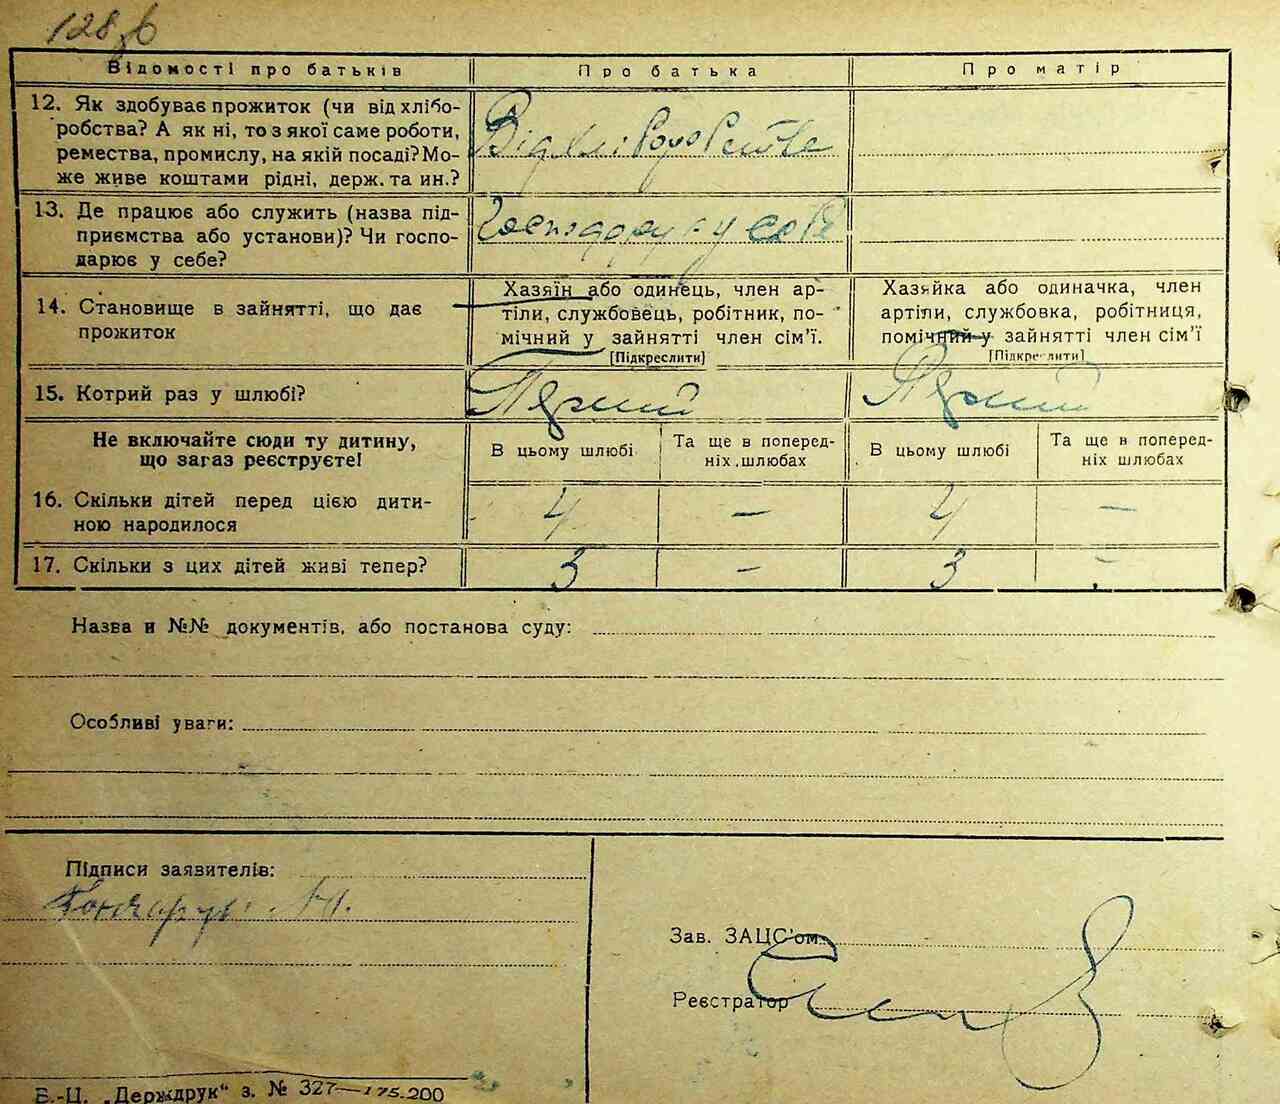 128зв
Відомості про батьків
Про батька
Про матір
12. Як здобуває прожиток (чи від хлібо-
робства? А як ні, то з якої саме роботи,
ремества, промислу, на якій посаді? Мо-
же живе коштами рідні, держ. та ин.?
Від хліборобства
13. Де працює або служить (назва під-
приємства або установи)? Чи госпо-
дарює у себе?
Господарує у себе
14. Становище в зайнятті, що дає
прожиток
Хазяїн або одинець, член ар-
тіли, службовець, робітник, по-
мічний у зайнятті член сім’ї.
[Підкреслити]
Хазяйка або одиначка, член
артіли, службовка, робітниця,
помічний у зайнятті член сім’ї
[Підкреслити]
15. Котрий раз у шлюбі?
Перший
Перший
Не включайте сюди ту дитину,
що загаз реєструєте!
В цьому шлюбі
Та ще в поперед-
ніх шлюбах
В цьому шлюбі
Та ще в поперед-
ніх шлюбах
16. Скільки дітей перед цією дити-
ною народилося
4 – 4 –
17. Скільки з цих дітей живі тепер?
3 – 3 -
Назва и №№ документів, або постанова суду:
Особливі уваги:
Підписи заявителів:
Гончарук
Зав. ЗАЦС’ом
Реєстратор
Б.-Ц. „Держдрук“ з. № 327—175.200